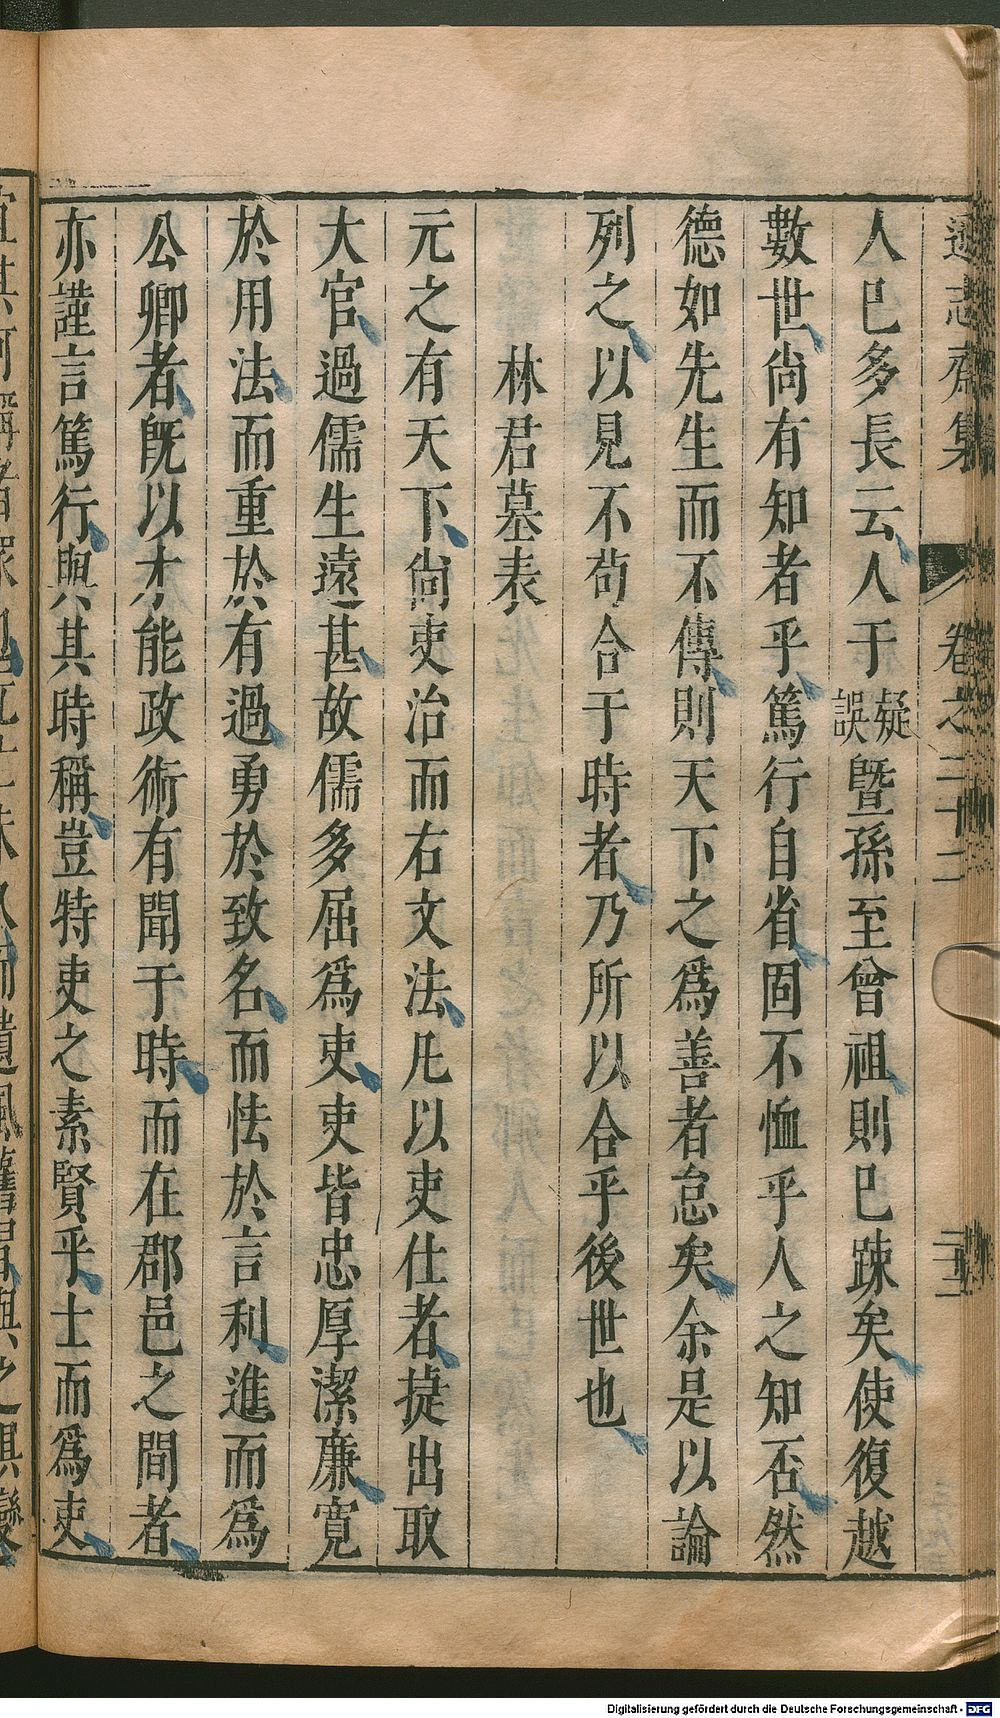 遜志齋集 卷之二十二
人已多長云人于疑誤曁孫至曾祖則已踈矣使復越
數世尚有知者乎篤行自省固不恤乎人之知否然
德如先生而不傳則天下之爲善者怠矣余是以論
列之以見不苟合于時者乃所以合乎後世也
林君墓表
元之有天下尚吏治而右文法凡以吏仕者㨗出取
大官過儒生遠甚故儒多屈爲吏吏皆忠厚潔廉寛
於用法而重於有過勇於致名而怯於言利進而爲
公卿者旣以才能政術有聞于時而在郡邑之間者
亦謹言篤行與其時稱豈特吏之素賢乎士而爲吏
Digitalisierung gefördert durch die Deutsche Forschungsgemeinschaft - DFG